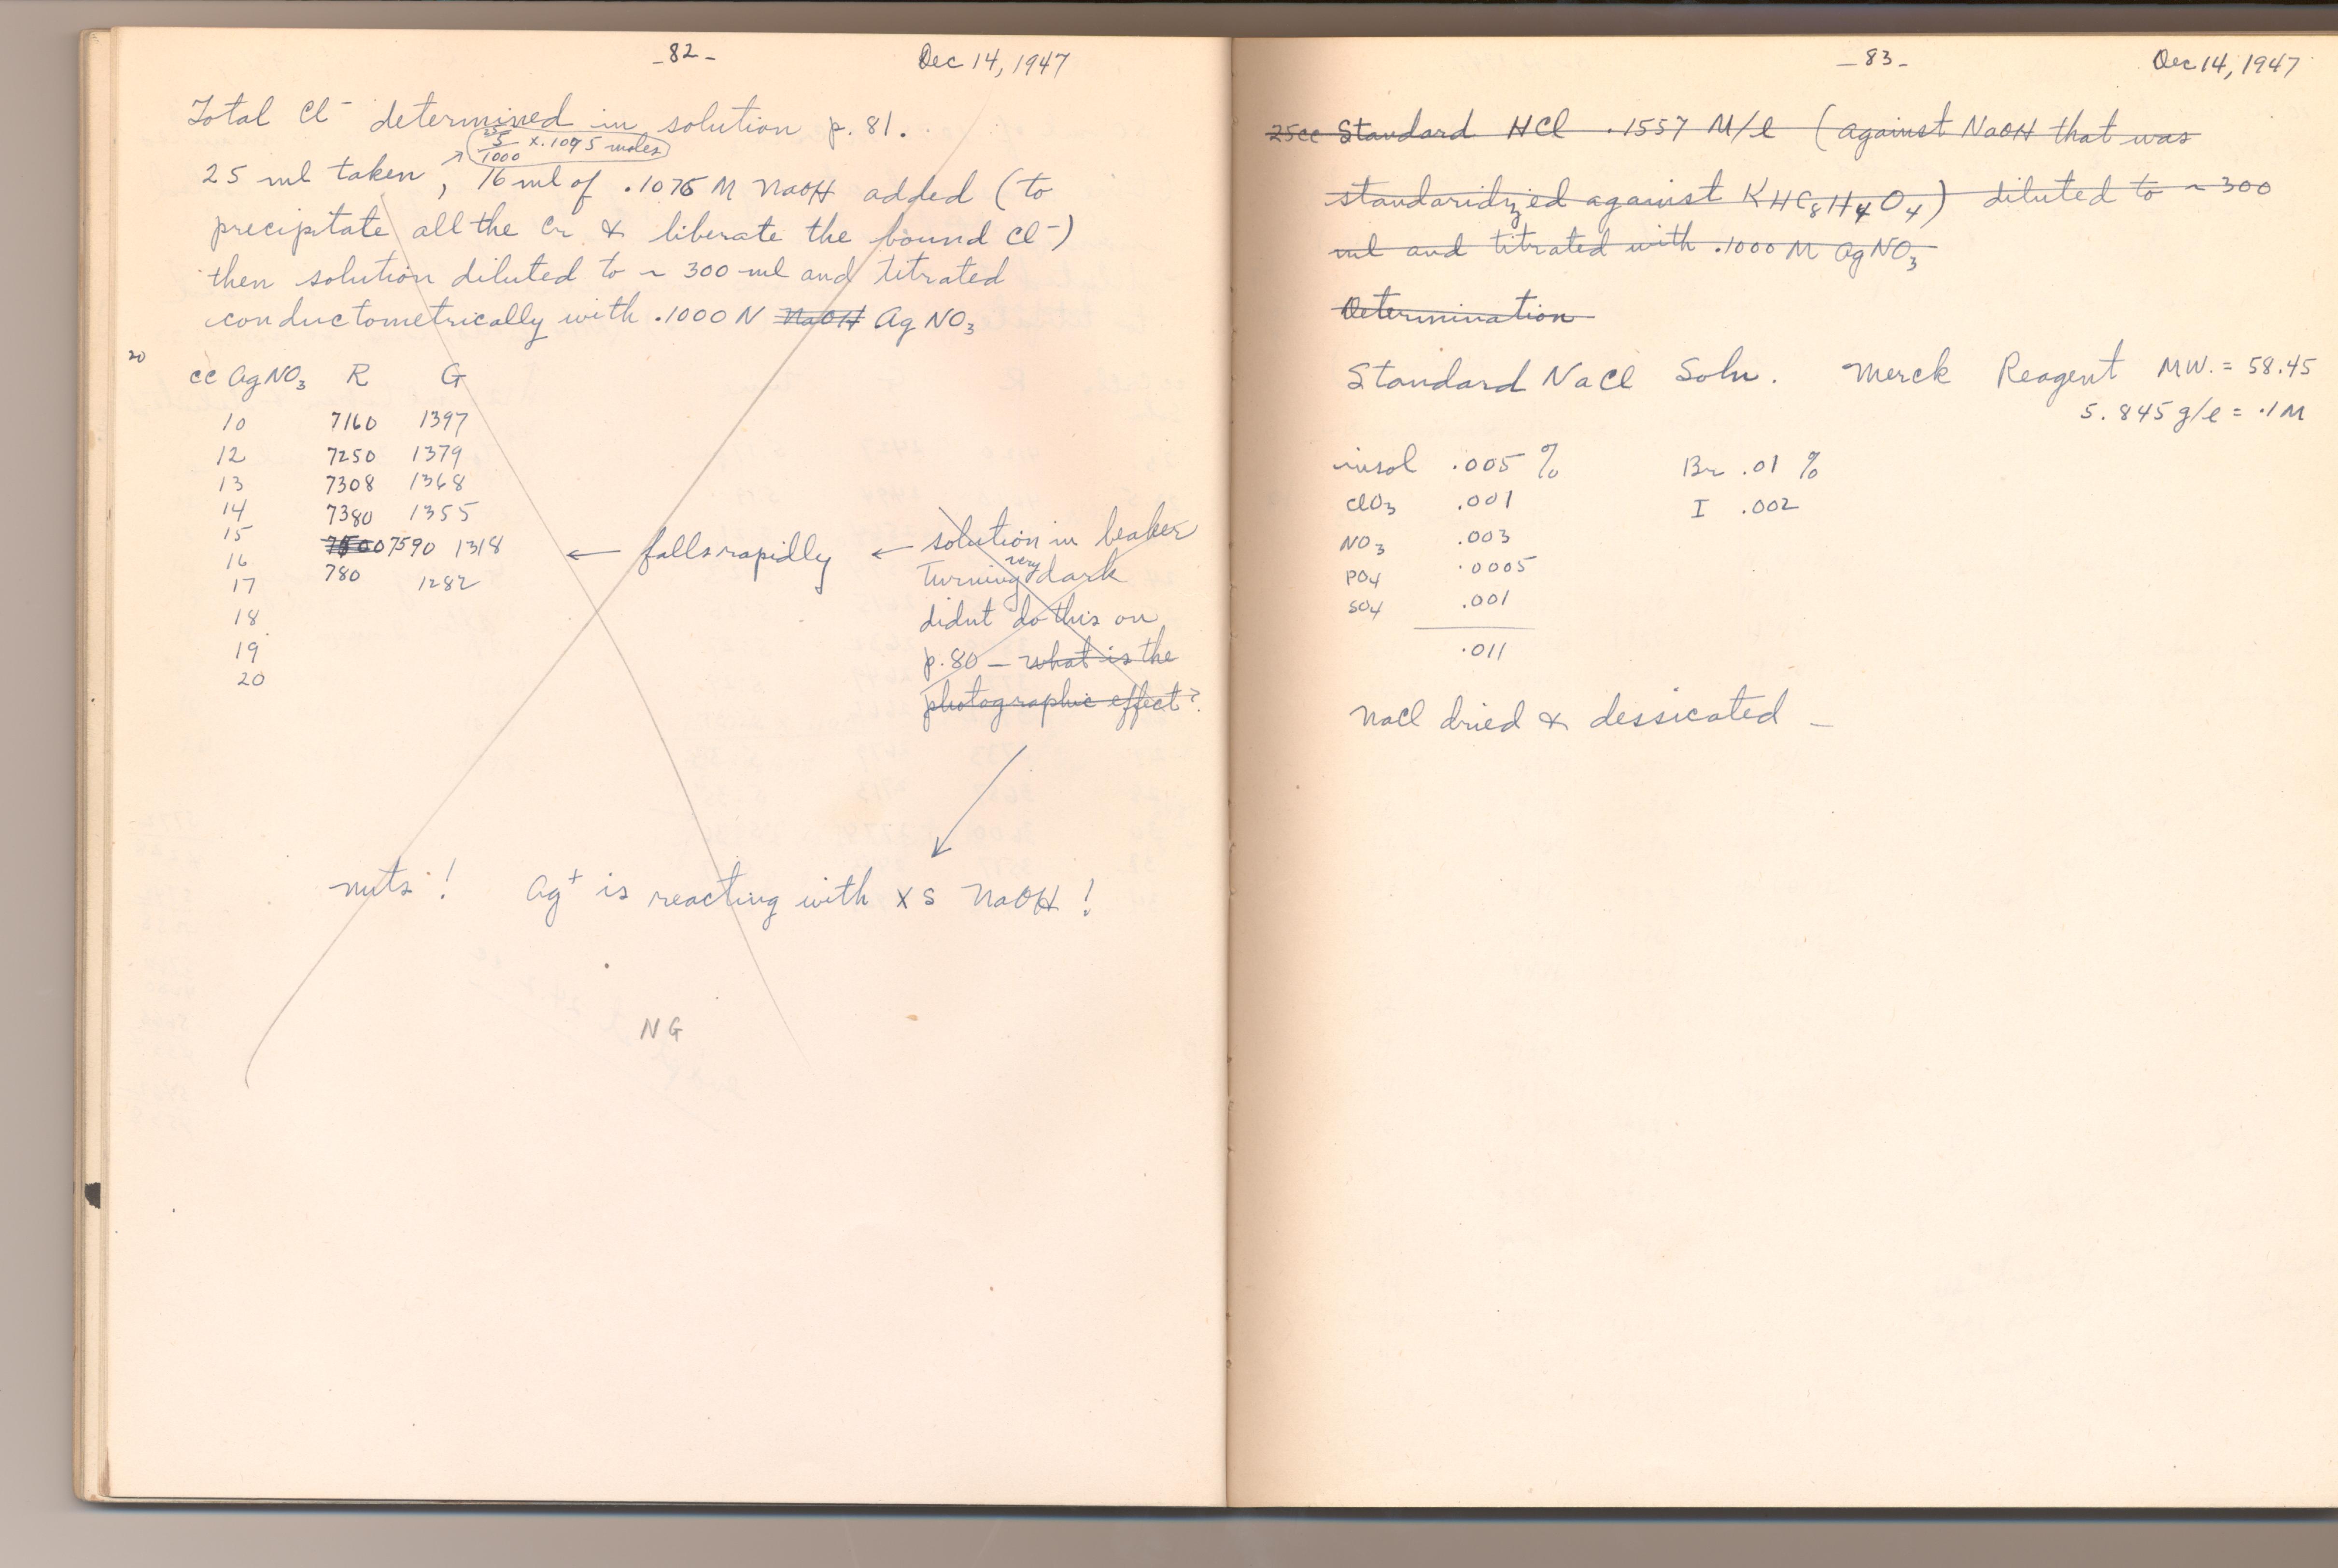 -82-
Dec 14, 1947
Total Cl⁻ determined in solution p. 81.
25/1000 x .1095 moles
25 ml taken, 16 ml of .1075 M NaOH added (to
precipitate all the Cr & liberate the bound Cl⁻)
then solution diluted to ~ 300 ml and titrated
conductometrically with .1000 N NaOH AgNO₃
20
cc AgNO₃ R G
10 7160 1397
12 7250 1379
13 7308 1368
14 7380 1355
15 7590 1318
16 780
17 1282
18
19
20
← falls rapidly ← solution in beaker
turning very dark
didnt do this on
p. 80 — what is the
photographic effect?
nuts! Ag⁺ is reacting with xs NaOH!
NG
-83-
Dec 14, 1947
25cc Standard HCl .1557 M/l (against NaOH that was
standaridized against KHC₈H₄O₄) diluted to ~ 300
ml and titrated with .1000 M AgNO₃
Determination
Standard NaCl Soln. Merck Reagent MW. = 58.45
5.845 g/l = .1 M
insol .005 % Br .01 %
ClO₃ .001 I .002
NO₃ .003
PO₄ .0005
SO₄ .001
.011
NaCl dried & dessicated —